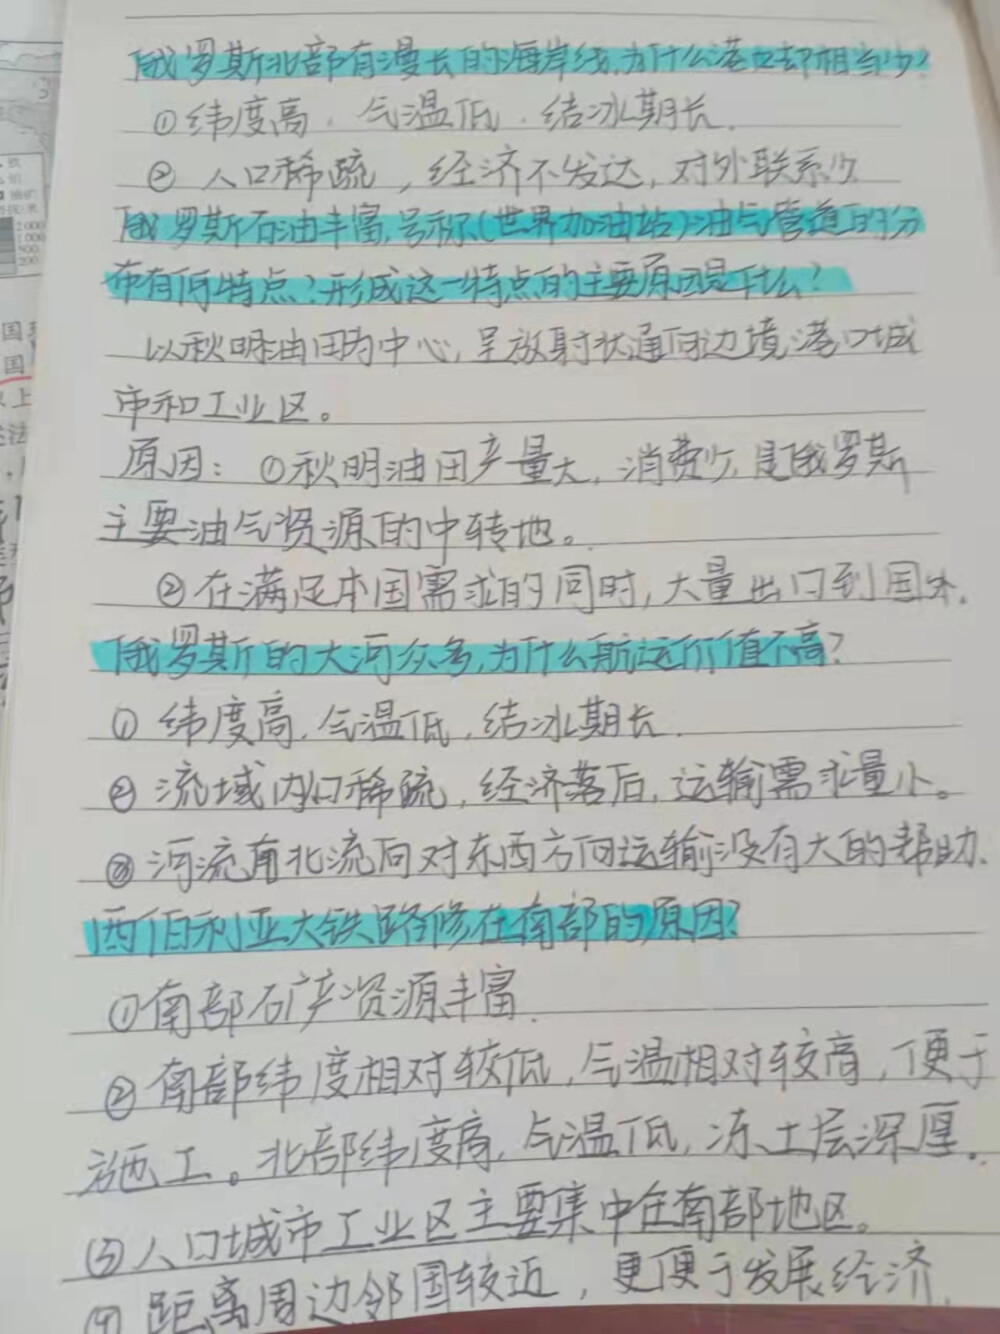 俄罗斯北部有漫长的海岸线,为什么港口却相当少?
①纬度高,气温低,结冰期长.
② 人口稀疏,经济不发达,对外联系少
俄罗斯石油丰富,号称(世界加油站)油气管道的分
布有何特点?形成这一特点的主要原因是什么?
以秋明油田为中心,呈放射状通向边境港口城
市和工业区。
原因:①秋明油田产量大,消费少,是俄罗斯
主要油气资源的中转地。
②在满足本国需求的同时,大量出口到国外.
俄罗斯的大河众多,为什么航运价值不高?
① 纬度高,气温低,结冰期长.
② 流域内人口稀疏,经济落后,运输需求量小。
③河流南北流向对东西方向运输没有大的帮助.
西伯利亚大铁路修在南部的原因?
①南部矿产资源丰富.
②南部纬度相对较低,气温相对较高,便于
施工。北部纬度高,气温低,冻土层深厚.
(3)人口城市工业区主要集中在南部地区。
(4) 距离周边邻国较近,更便于发展经济.
2000
1000
500
200
国
国
上
法